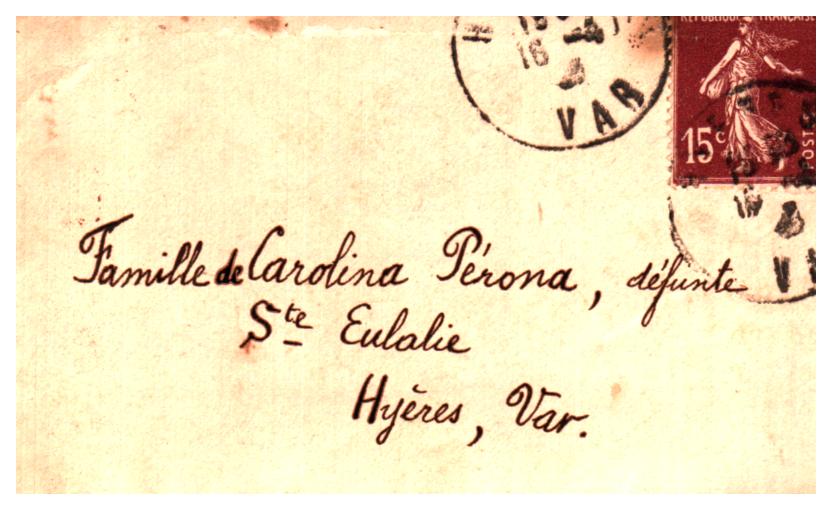 RÉPUBLIQUE FRANÇAISE
15c
POST
VAR
Famille de Carolina Pérona, défunte
Ste Eulalie
Hyères, Var.